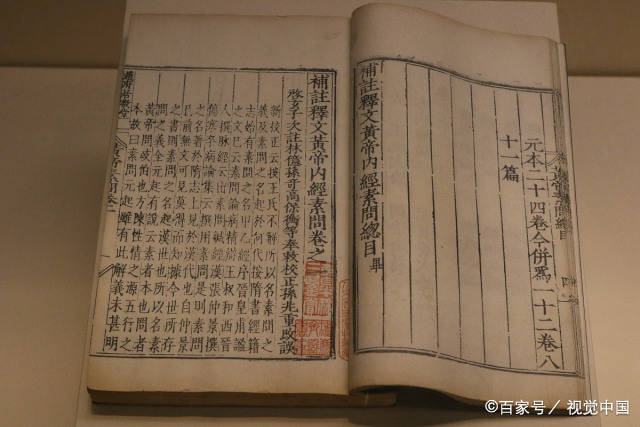 元本二十四卷今併爲一十二卷八
十一篇
補註釋文黃帝內經素問總目畢
補註釋文黃帝內經素問卷之一
啓玄子次註林億孫奇高保衡等奉敕校正孫兆重改誤
新校正云按王氏不解所以名素問之
義及素問之名起於何代按隋書經籍
志始有素問之名甲乙經序晉皇甫謐
之文已云素問論病精辨王叔和西晉
人撰脉經云出素問鍼經漢張仲景撰
傷寒卒病論集云撰用素問是則素問
之名著於隋志上見於漢代也自仲景
之前無文可見莫得而知據今世所存
之書則素問之名起漢世也所以名素
問之義全元起有說云素者本也問者
黃帝問歧伯也方陳性情之源五行之
本故曰素問元起雖有此解義未甚明
©百家号／视觉中国